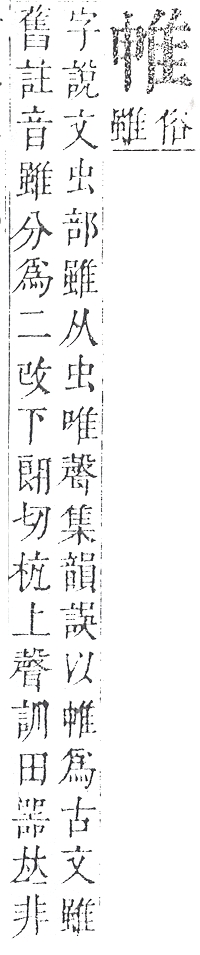 帷
俗
雖
字說文虫部雖从虫唯聲集韻誤以帷爲古文雖
舊註音雖分爲二改下朗切杭上聲訓田器𠀤非